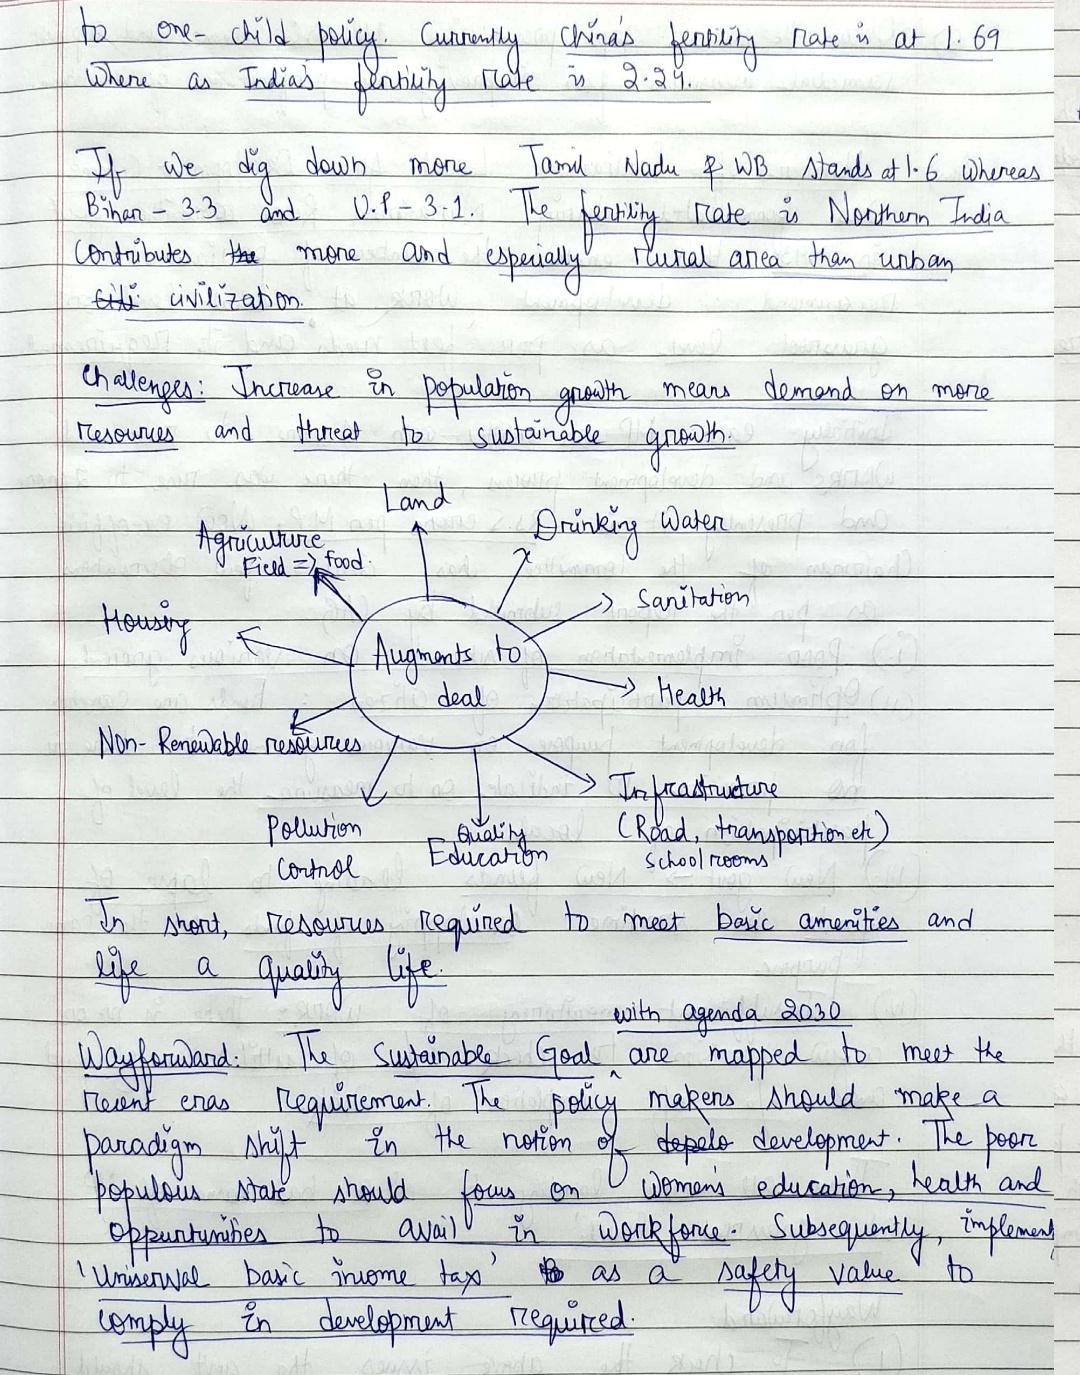 to one- child policy. Currently China's fertility rate is at 1.69
where as India's fertility rate is 2.24.
If we dig down more Tamil Nadu & WB stands at 1.6 whereas
Bihar - 3.3 and U.P - 3.1. The fertility rate is Northern India
contributes the more and especially rural area than urban
citi civilization.
Challenges: Increase in population growth means demand on more
resources and threat to sustainable growth.
Land
Drinking Water
Agriculture
Field => food.
Sanitation
Housing
Augments to
deal
Health
Non- Renewable resources
Infrastructure
(Road, transportion etc)
School rooms
Pollution
Control
Quality
Education
In short, resources required to meet basic amenities and
life a quality life.
with agenda 2030
Wayforward: The Sustainable Goal ^ are mapped to meet the
recent eras requirement. The policy makers should make a
paradigm shift in the notion of depelo development. The poor
populous state should focus on women's education, health and
oppurtunities to avail in workforce. Subsequently, implement
'Uniserwal basic income tax' as a safety value to
comply in development required.